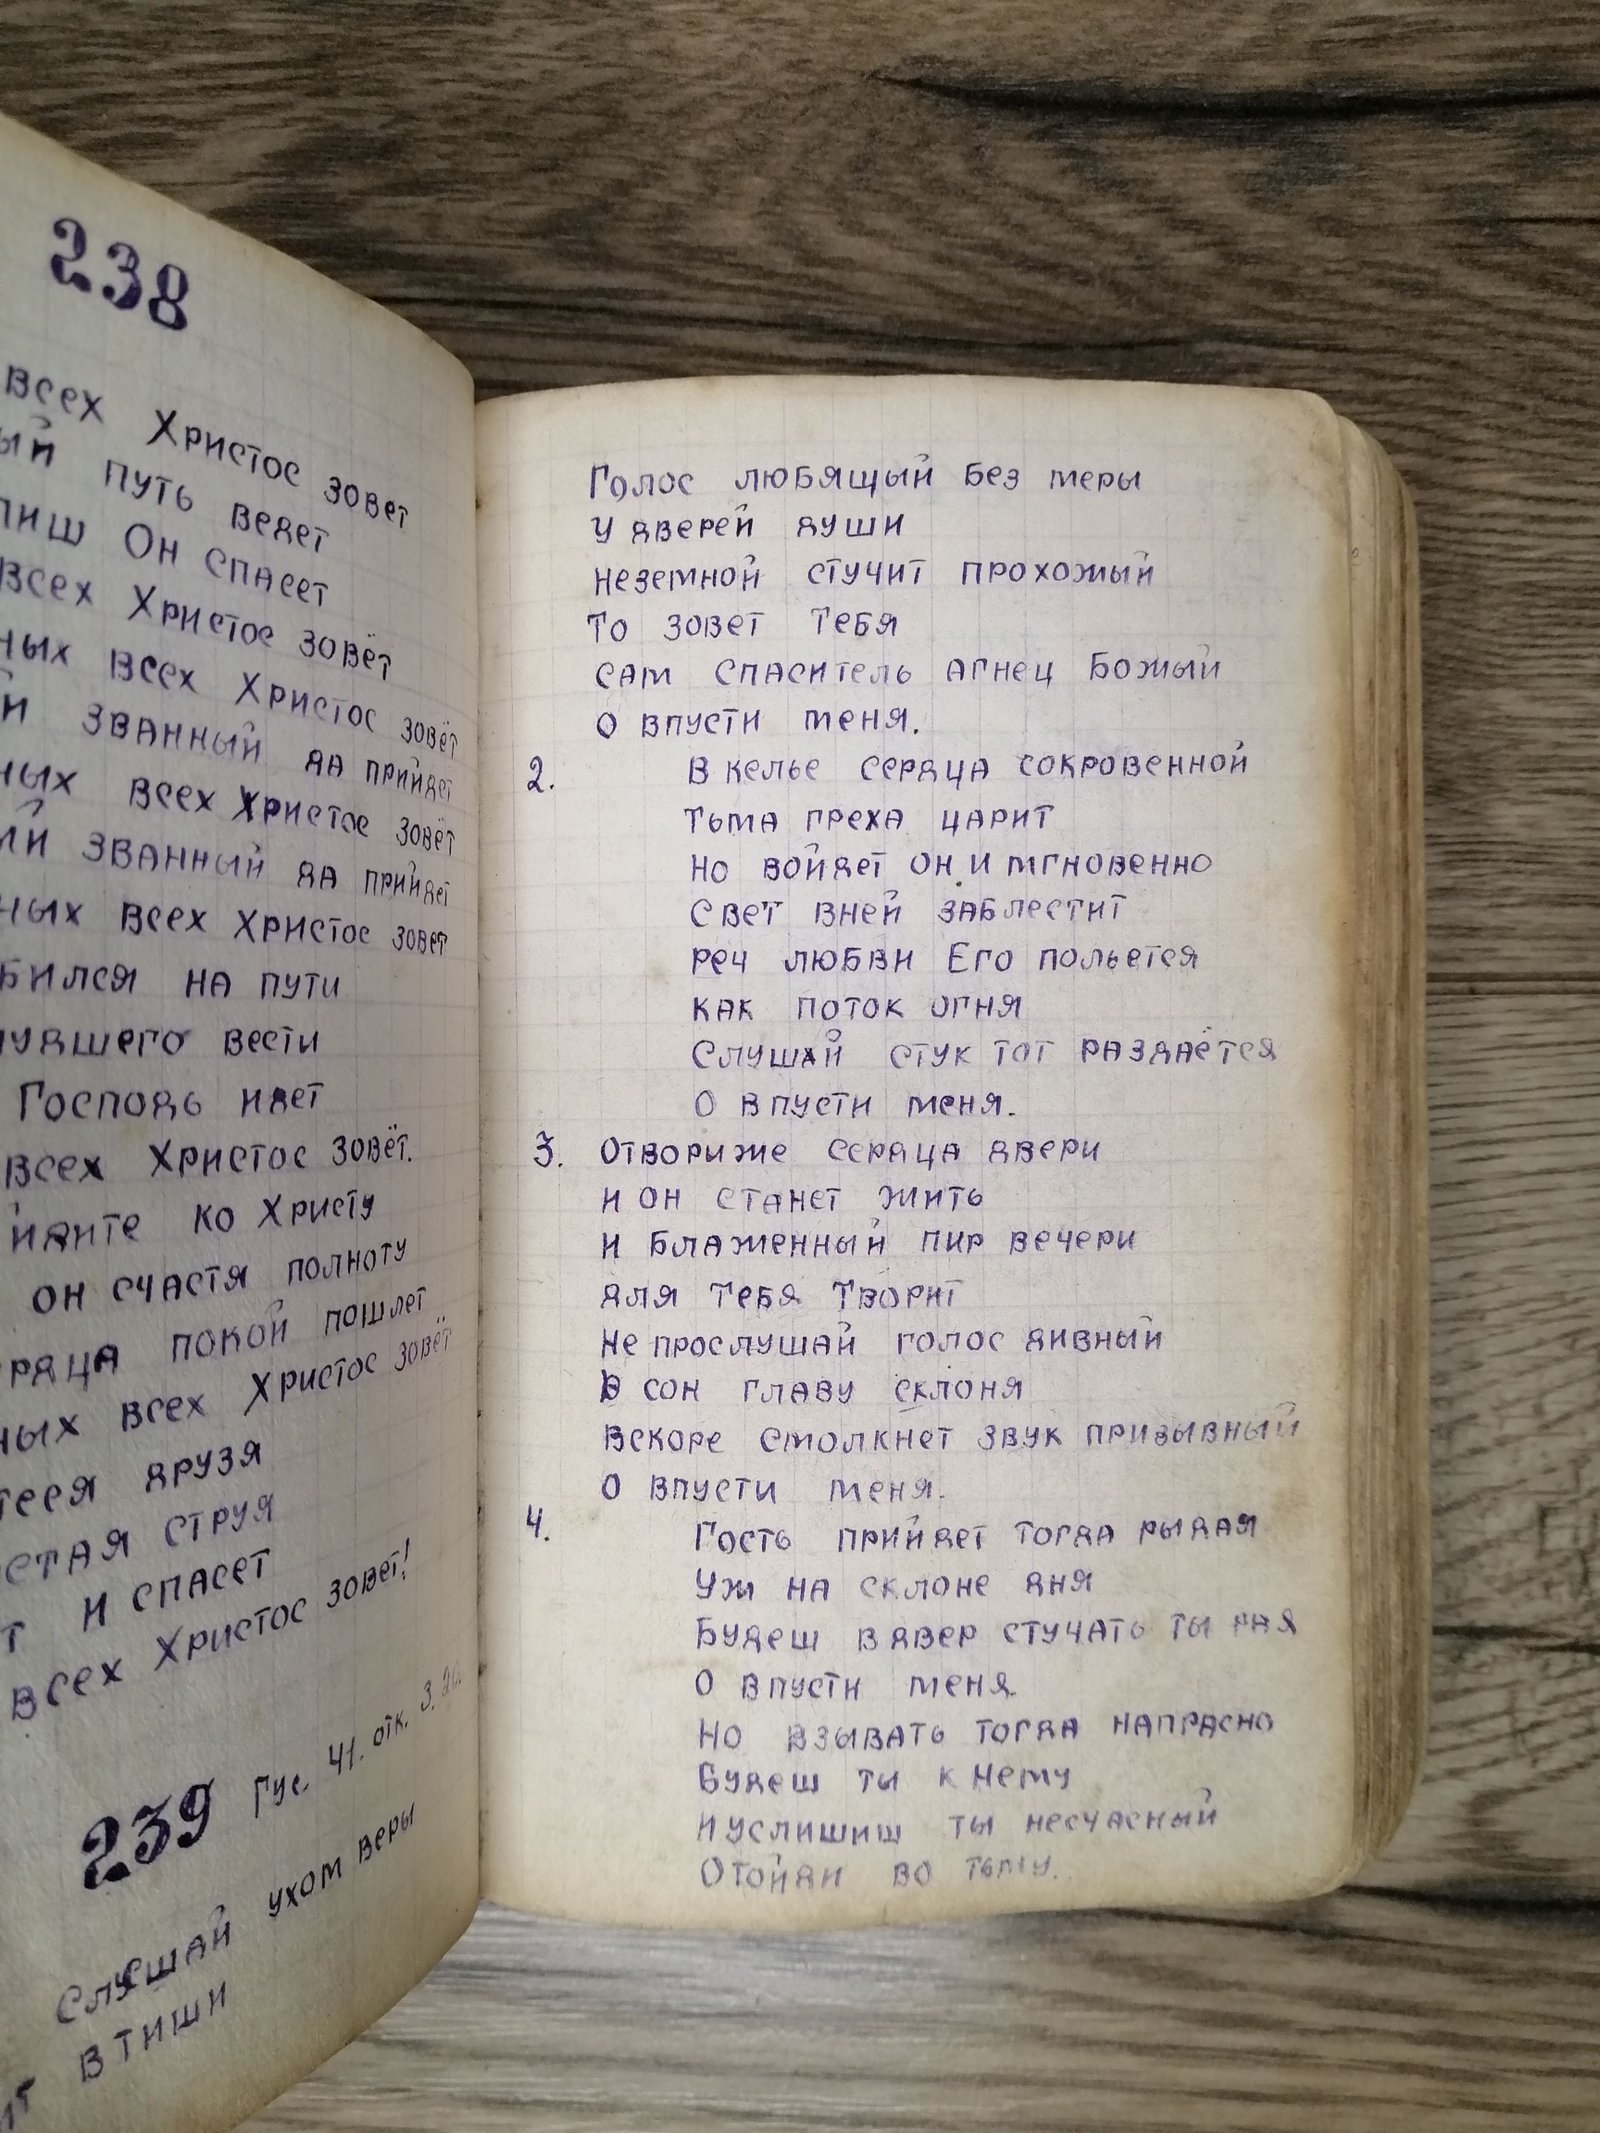 238
всех Христос зовет
ый путь ведет
пиш Он спасет
всех Христос зовёт
ных всех Христос зовёт
й званный да прийдет
ных всех Христос зовёт
ый званный да прийдет
ных всех Христос зовет
бился на пути
нувшего вести
Господь идет
всех Христос зовёт.
идите ко Христу
он счастя полноту
рдца покой пошлет
ных всех Христос зовёт
теся друзя
стая струя
т и спасет
всех Христос зовет!
239 Гус. 41. отк. 3.20.
Слушай ухом веры
ит в тиши
Голос любящый без меры
у дверей души
неземной стучит прохожый
то зовет тебя
сам спаситель агнец Божый
о впусти меня.
2. В келье сердца сокровенной
тьма греха царит
но войдет он и мгновенно
свет вней заблестит
реч любви Его польется
как поток огня
Слушай стук тот раздаётся
О впусти меня.
3. Отвориже сердца двери
и он станет жить
и блаженный пир вечери
для тебя творит
не прослушай голос дивный
В сон главу склоня
вскоре смолкнет звук призывный
О впусти меня.
4. Гость прийдет тогда рыдая
Уж на склоне дня
Будеш в двер стучать ты рая
О впусти меня
Но взывать тогда напрасно
Будеш ты к Нему
И услишиш ты несчасный
Отойди во тьму.